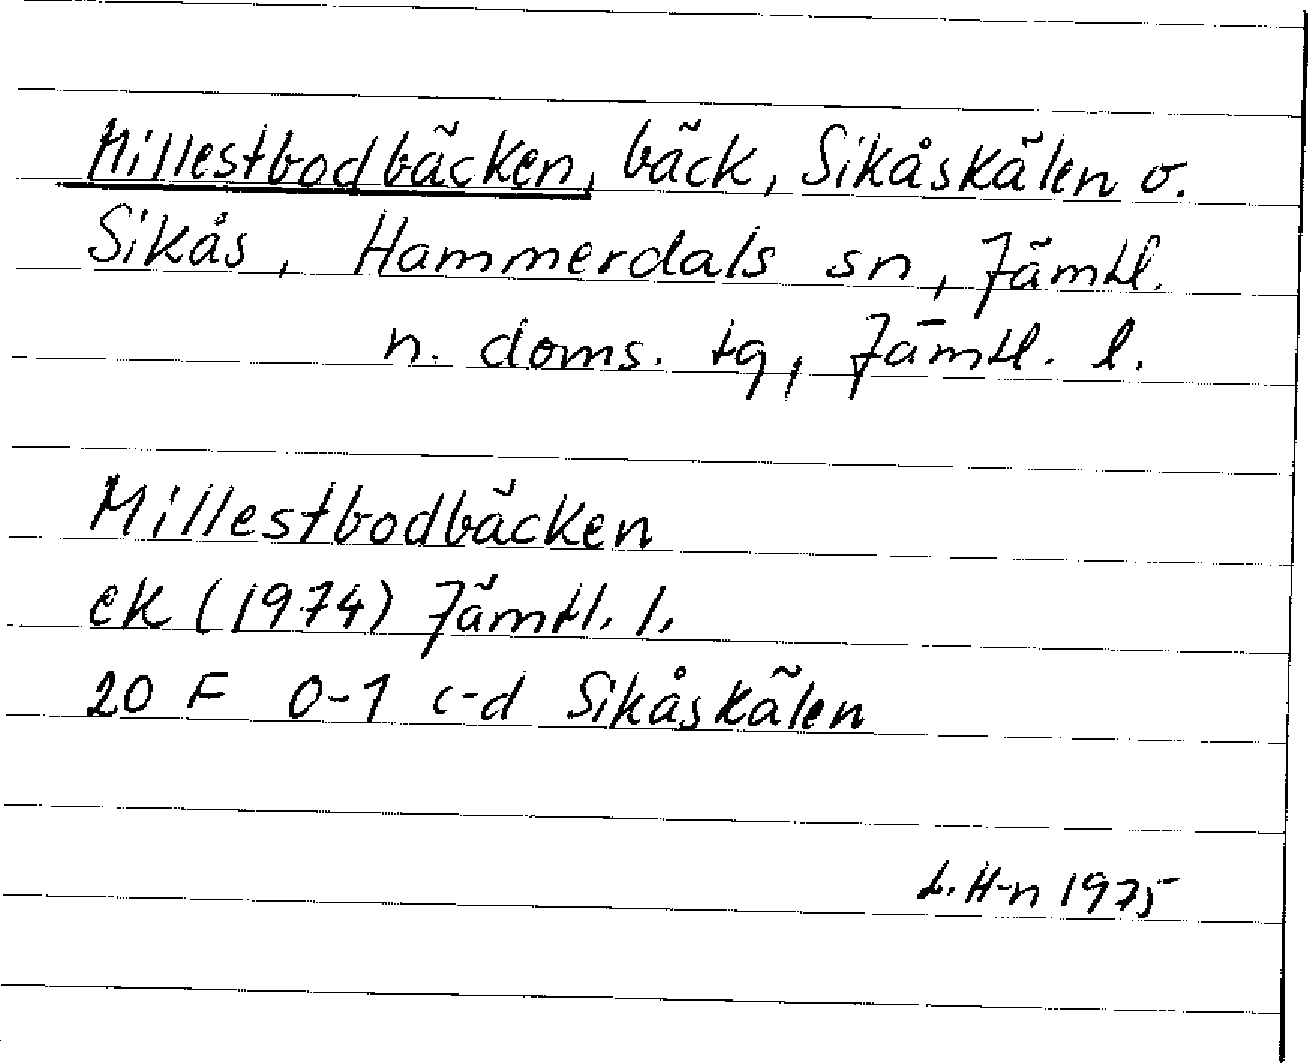 Millestbodbäcken, bäck, Sikåskälen o.
Sikås, Hammerdals sn, Jämtl.
n. doms. tg, Jämtl. l.
Millestbodbäcken
ek (1974) Jämtl. l.
20 F 0-1 c-d Sikåskälen
L. H-n 1975